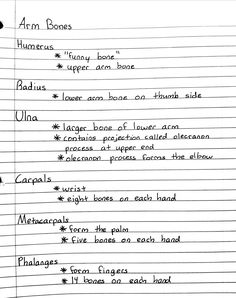 Arm Bones
Humerus
* "funny bone"
* upper arm bone
Radius
* lower arm bone on thumb side
Ulna
* larger bone of lower arm
* contains projection called olecranon
process at upper end
* olecranon process forms the elbow
Carpals
* wrist
* eight bones on each hand
Metacarpals
* form the palm
* five bones on each hand
Phalanges
* form fingers
* 14 bones on each hand